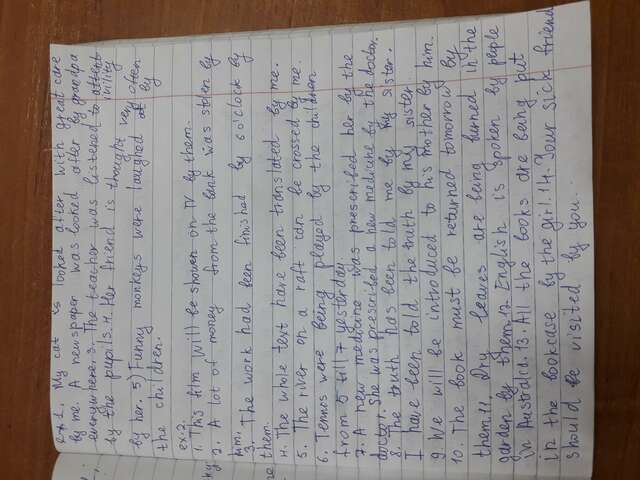 ex 1. My cat is looked after with great care
by me. A newspaper was looked after by grandpa
everywhere. 3. The teacher was listened to attent
ibility
by the pupils. 4. Her friend is thought very often
by her 5) Funny monkeys were laughed at by
the children.
ex 2.
1. This film will be shown on TV by them.
2. A lot of money from the bank was stolen by
him.
3. The work had been finished by 6 o'clock by
them.
4. The whole text have been translated by me.
5. The river on a raft can be crossed by me.
6. Tennis were being played by the children
from 5 till 7 yesterday.
7. A new medicine was prescribed her by the
doctor. She was prescribed a new medicine by the doctor.
8. The truth has been told me by my sister.
I have been told the truth by my sister
9. We will be introduced to his mother by him.
10. The book must be returned tomorrow by
them. 11. Dry leaves are being burned in the
garden by them. 12. English is spoken by people
in Australia. 13. All the books are being put
in the bookcase by the girl. 14. Your sick friend
should be visited by you.